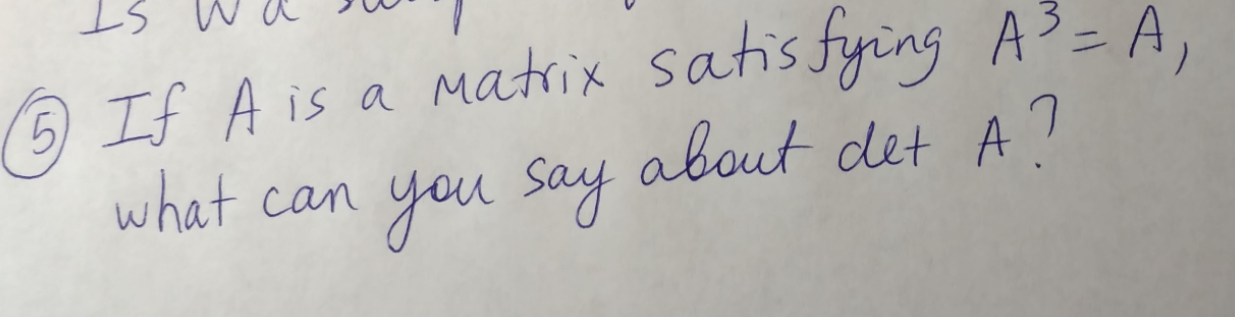 Is W a
⑤ If A is a matrix satisfying A³ = A,
what can you say about det A?